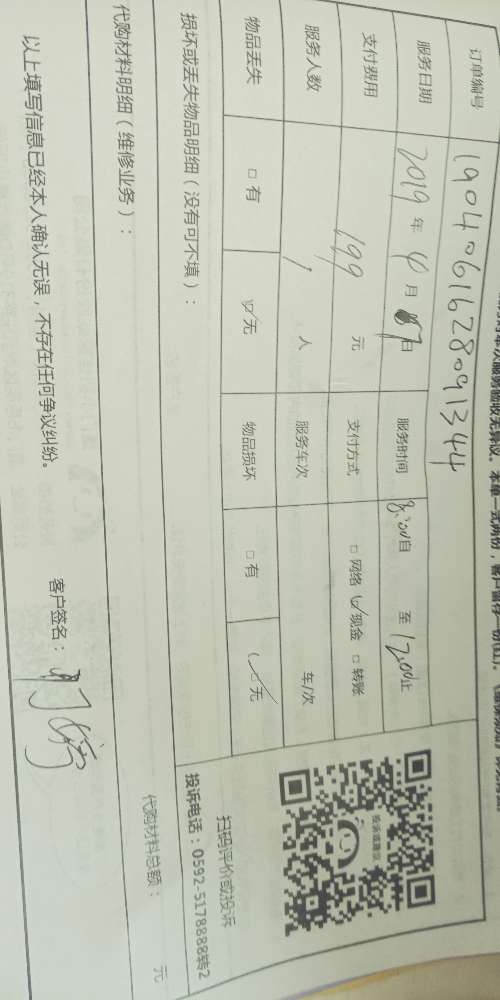 订单编号 190406162809134４
服务日期 2019年4月7日 服务时间 8:00自 至 12:00止
支付费用 199 元 支付方式 □网络 ☑现金 □转账
服务人数 1 人 服务车次 车/次
物品丢失 □有 ☑无 物品损坏 □有 ☑无
损坏或丢失物品明细（没有可不填）：
代购材料明细（维修业务）：
代购材料总额： 元
以上填写信息已经本人确认无误，不存在任何争议纠纷。 客户签名：
投诉或建议
扫码评价或投诉
投诉电话：0592-5178888转2